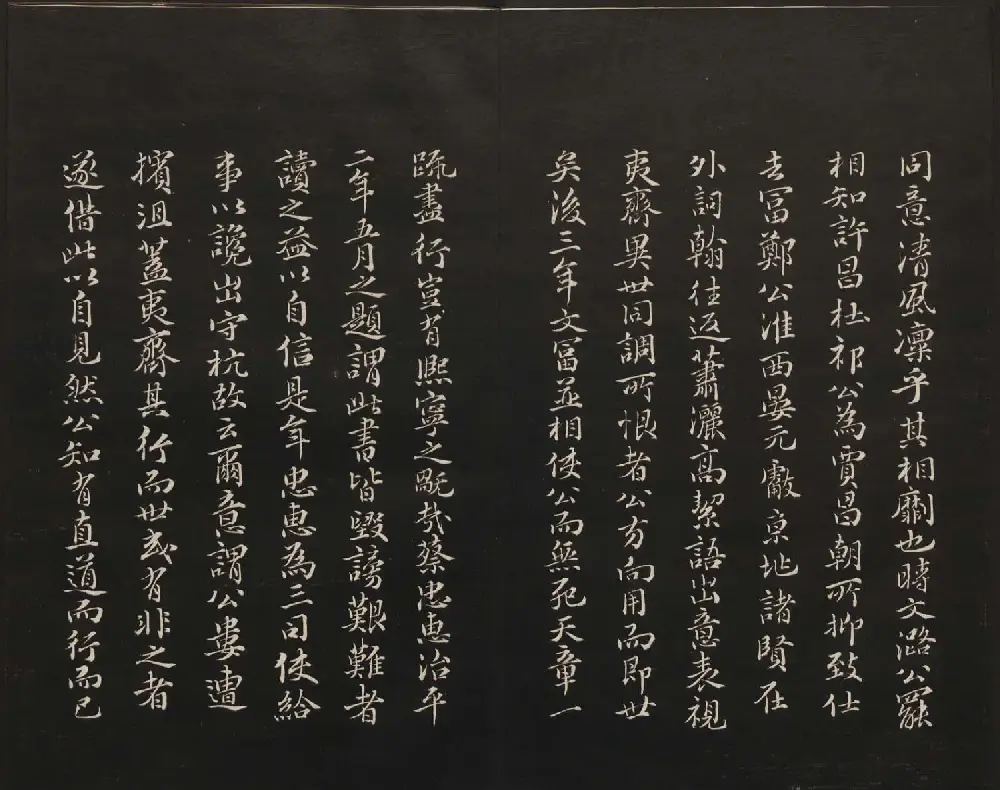 同意清風凜乎其相關也時文潞公罷
相知許昌杜祁公為賈昌朝所抑致仕
去冨鄭公淮西晏元獻京地諸賢在
外詞翰往返蕭灑高絜語出意表視
夷齊異世同調所恨者公方向用而即世
矣後三年文冨並相使公而無死天章一
疏盡行豈有熙寧之覵哉蔡忠惠治平
二年五月之題謂此書皆毀謗艱難者
讀之益以自信是年忠惠為三司使給
事以讒出守杭故云爾意謂公婁遭
擯沮蓋夷齊其行而世或有非之者
遂借此以自見然公知有直道而行而已